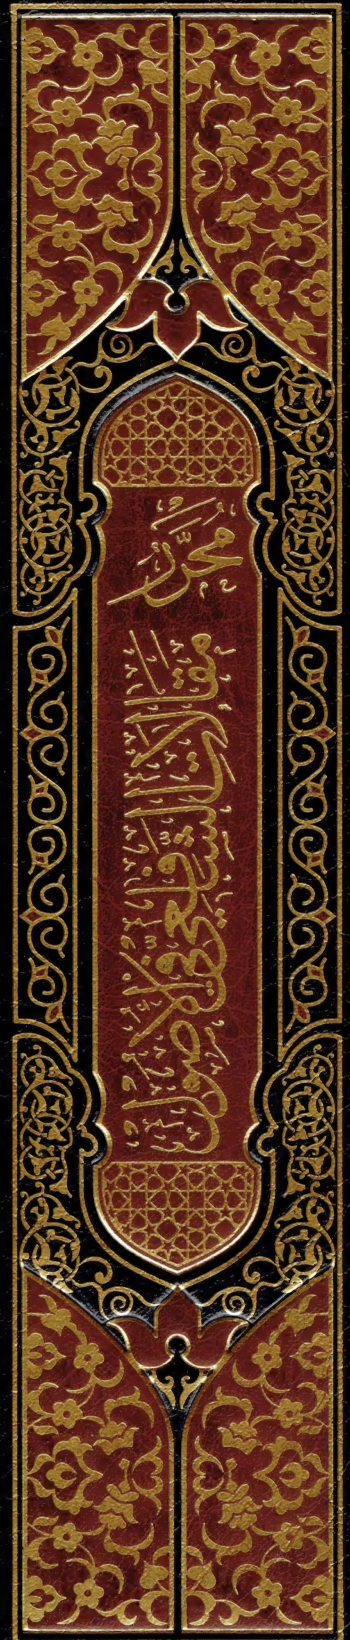 مُحَرَّرُ مَقَالَاتِ الشَّافِعِيِّ فِي الْأُصُولِ